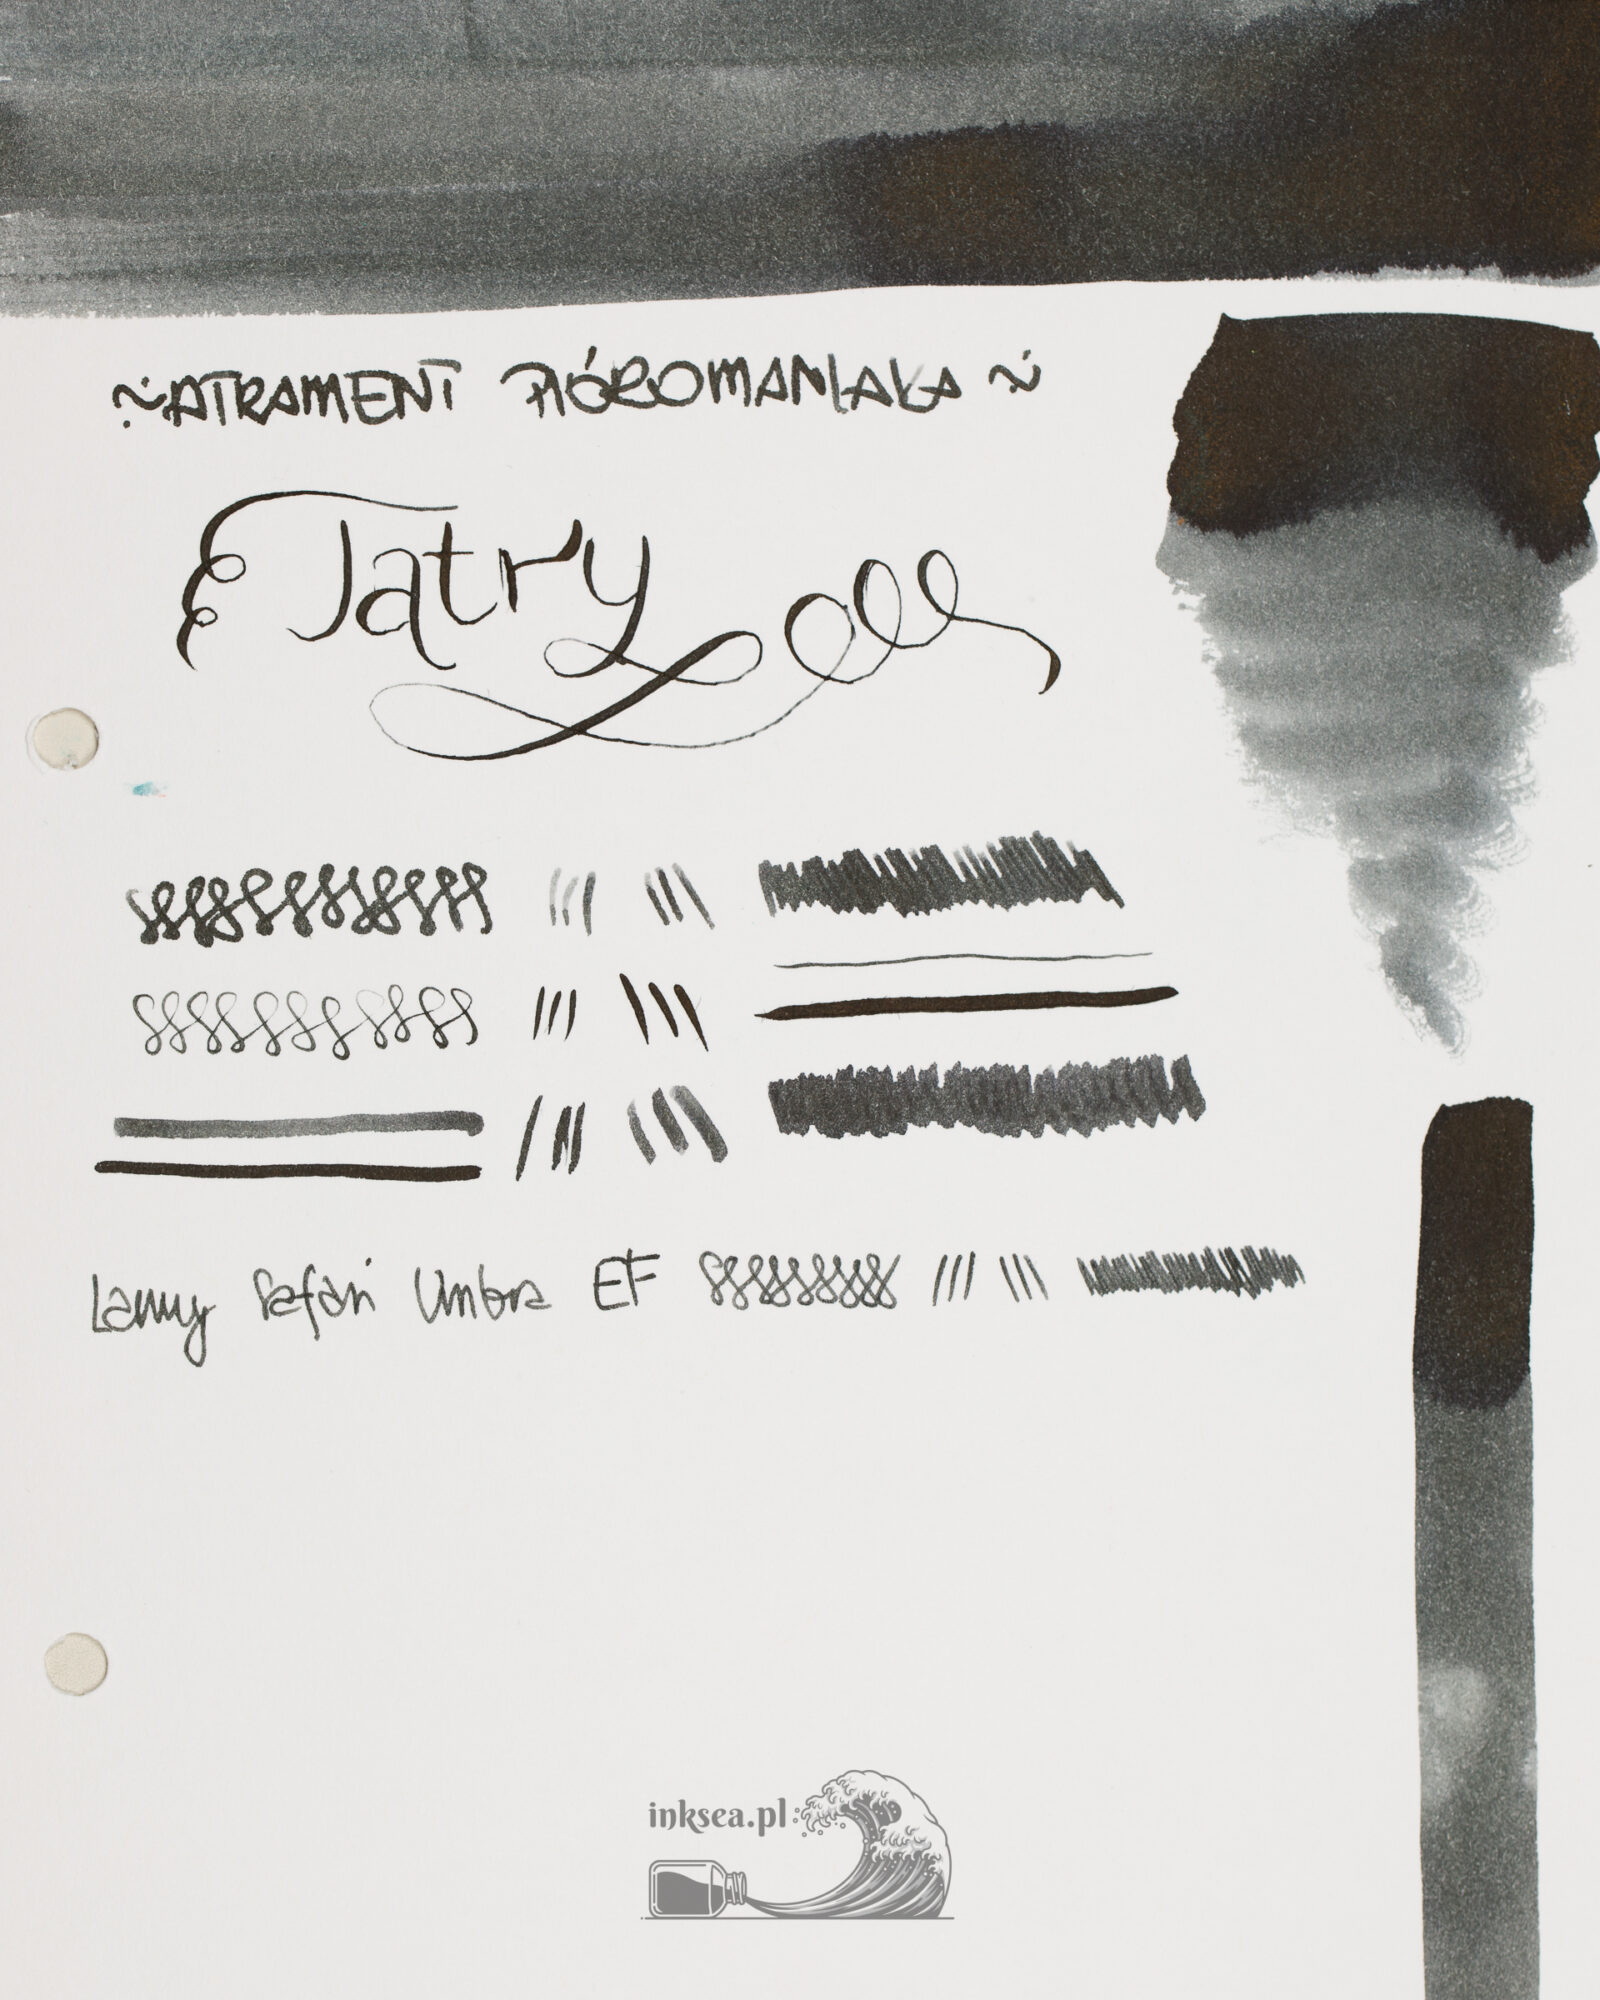 ~ATRAMENT PIÓROMANIAKA~
Tatry
Lamy Safari Umbra EF
inksea.pl